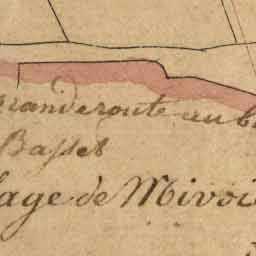 grande route au b
Basset
lage de Mivoi